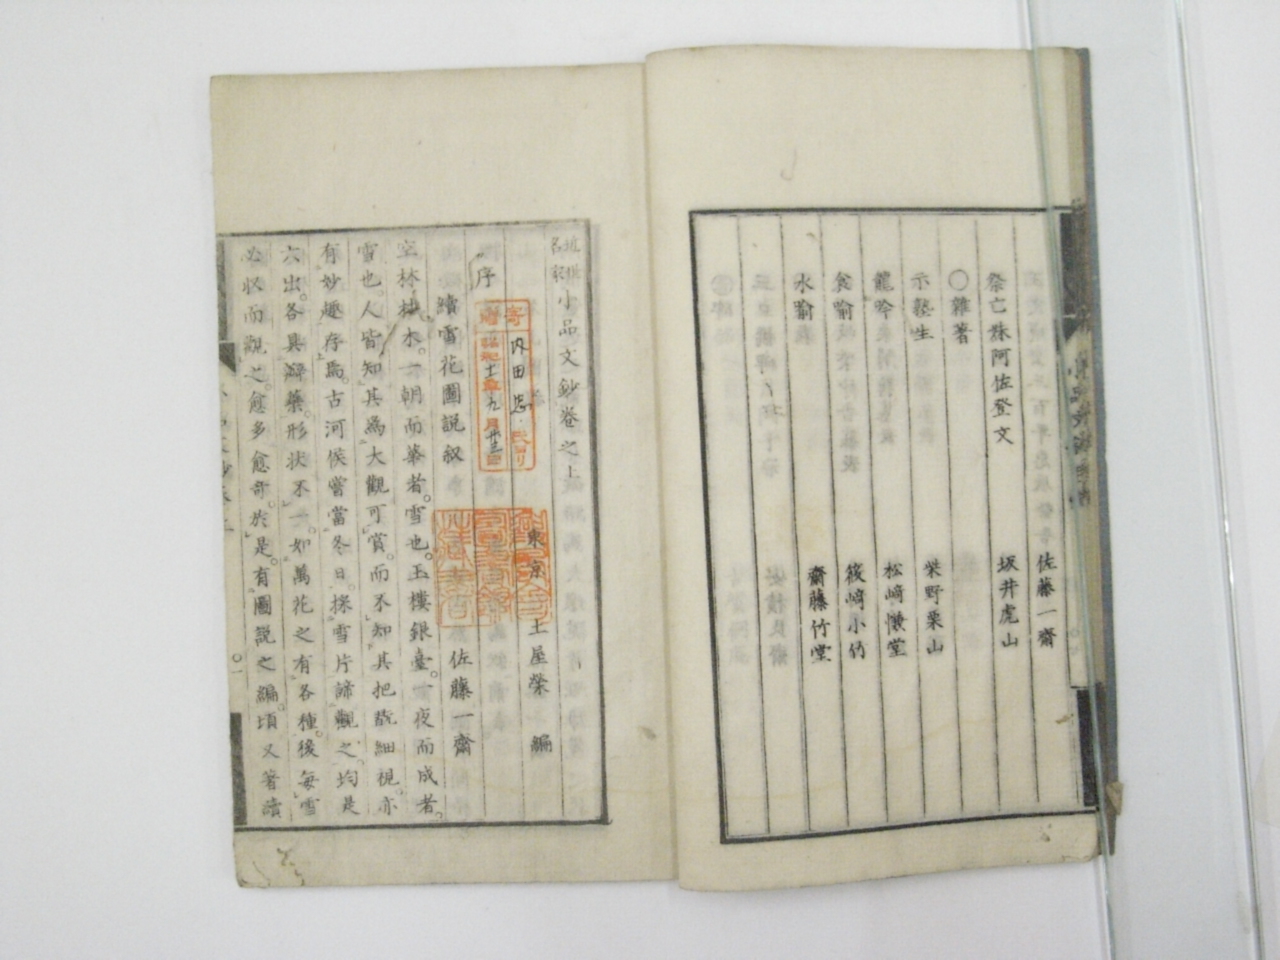 佐藤一齋
祭亡妹阿佐登文 坂井虎山
○雜著
示塾生 柴野栗山
龍吟 松﨑慊堂
食喻 篠﨑小竹
水喻 齋藤竹堂
近世名家小品文鈔卷之上
東京 土屋榮 編
序
續雪花圖説叙 佐藤一齋
空林枯木。一朝而華者。雪也。玉樓銀臺。一夜而成者。
雪也。人皆知其爲大觀可賞。而不知其把翫細視。亦
有妙趣存焉。古河侯嘗當冬日。採雪片諦觀之。均是
六出。各具瓣蘂。形状不一。如萬花之有各種。後每雪
必收而觀之。愈多愈奇。於是。有圖説之編。頃又著續
寄贈
内田
十一年九月廿三日